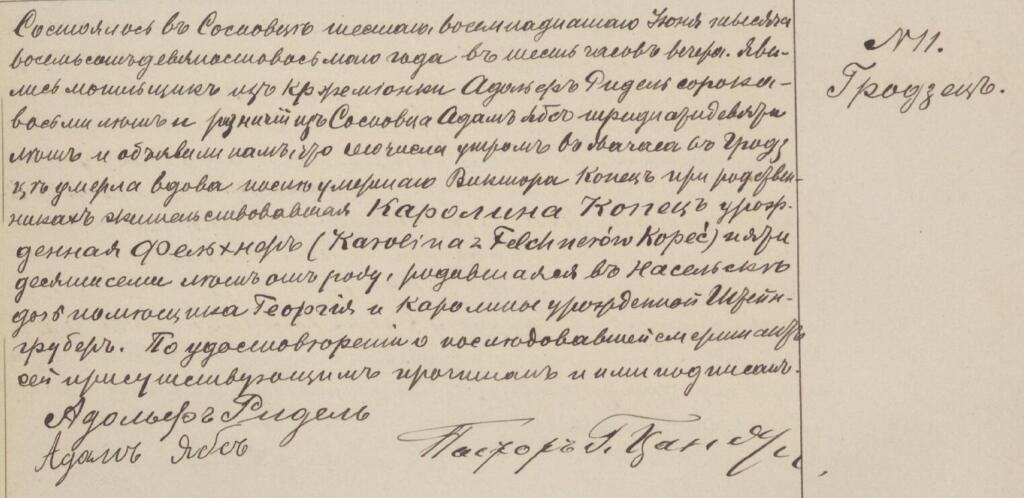 Состоялось въ Сосновцѣ шестаго, восемнадцатаго Іюня тысяча
восемьсотъ девяностовосьмаго года въ шесть часовъ вечера. Яви-
лись могильщикъ изъ Адольфъ Ридель сорока-
восьми лѣтъ и изъ Сосновца Адамъ Ябсъ тридцатидевяти
лѣтъ и объявили намъ, что сего числа утромъ въ два часа въ Гродз
цѣ умерла вдова послѣ умершаго Виктора Копецъ при родствен-
никахъ жительствовавшая Каролина Копецъ урож-
денная Фельхнеръ (Karolina z Felchnerów Kopeć) пяти
десятисеми лѣтъ отъ роду, родившаяся въ Насельскѣ
дочь помѣщика Георгія и Каролины урожденной Штейн-
груберъ. По удостовѣреніи о послѣдовавшей смерти актъ
сей присутствующимъ прочитанъ и ими подписанъ.
Адольфъ Ридель
Адамъ Ябсъ
Пасторъ Г.
N 11.
Гродзецъ.